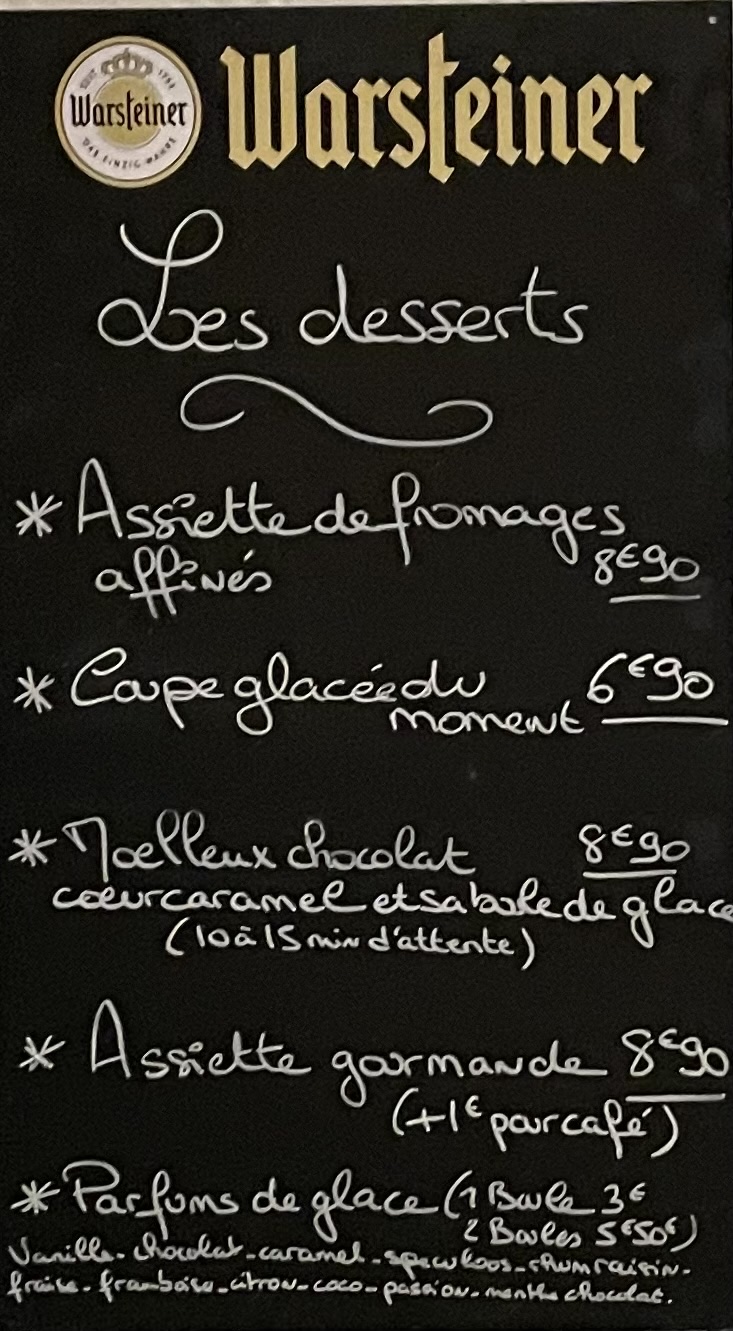 SEIT 1753
Warsteiner
DAS EINZIG WAHRE
Warsteiner
Les desserts
* Assiette de fromages
affinés 8€90
* Coupe glacée du 6€90
moment
* Moelleux chocolat 8€90
cœur caramel et sa boule de glace
(10 à 15 min d'attente)
* Assiette gourmande 8€90
(+1€ pour café)
* Parfums de glace (1 Boule 3€
2 Boules 5€50€)
Vanille - chocolat - caramel - speculoos - rhum raisin -
fraise - framboise - citron - coco - passion - menthe chocolat.